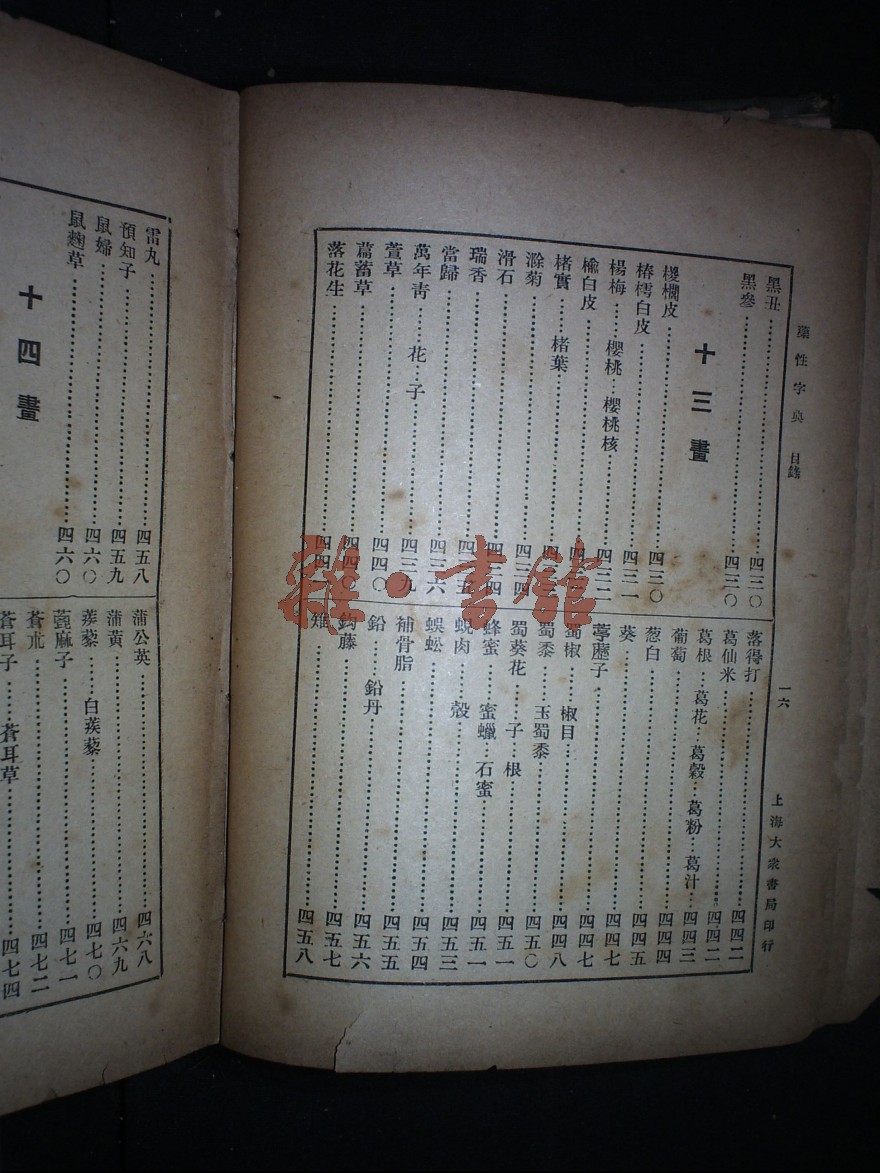 藥性字典　目錄
一六
上海大衆書局印行
黑丑……四三〇
黑參……四三〇
十三畫
椶櫚皮……四三〇
椿樗白皮……四三一
楊梅…櫻桃…櫻桃核……四三二
楡白皮……四
楮實…楮葉……四
滁菊……四
滑石……四三四
瑞香……四
當歸……四三六
萬年靑…花…子……四三九
萱草……四四〇
萹蓄草……四四〇
落花生……四四
落得打……四四二
葛仙米……四四二
葛根…葛花…葛穀…葛粉…葛汁…四四三
葡萄……四四四
葱白……四四五
葵……四四七
葶藶子……四四七
蜀椒…椒目……四四八
蜀黍…玉蜀黍……四五〇
蜀葵花…子…根……四五一
蜂蜜…蜜蠟…石蜜……四五一
蜆肉…殼……四五三
蜈蚣……四五四
補骨脂……四五五
鉛…鉛丹……四五六
鉤藤……四五七
雉……四五八
雷丸……四五八
預知子……四五九
鼠婦……四六〇
鼠麴草……四六〇
十四畫
蒲公英……四六八
蒲黃……四六九
蒺藜…白蒺藜……四七〇
蓖麻子……四七一
蒼朮……四七二
蒼耳子…蒼耳草……四七四
雜·書館